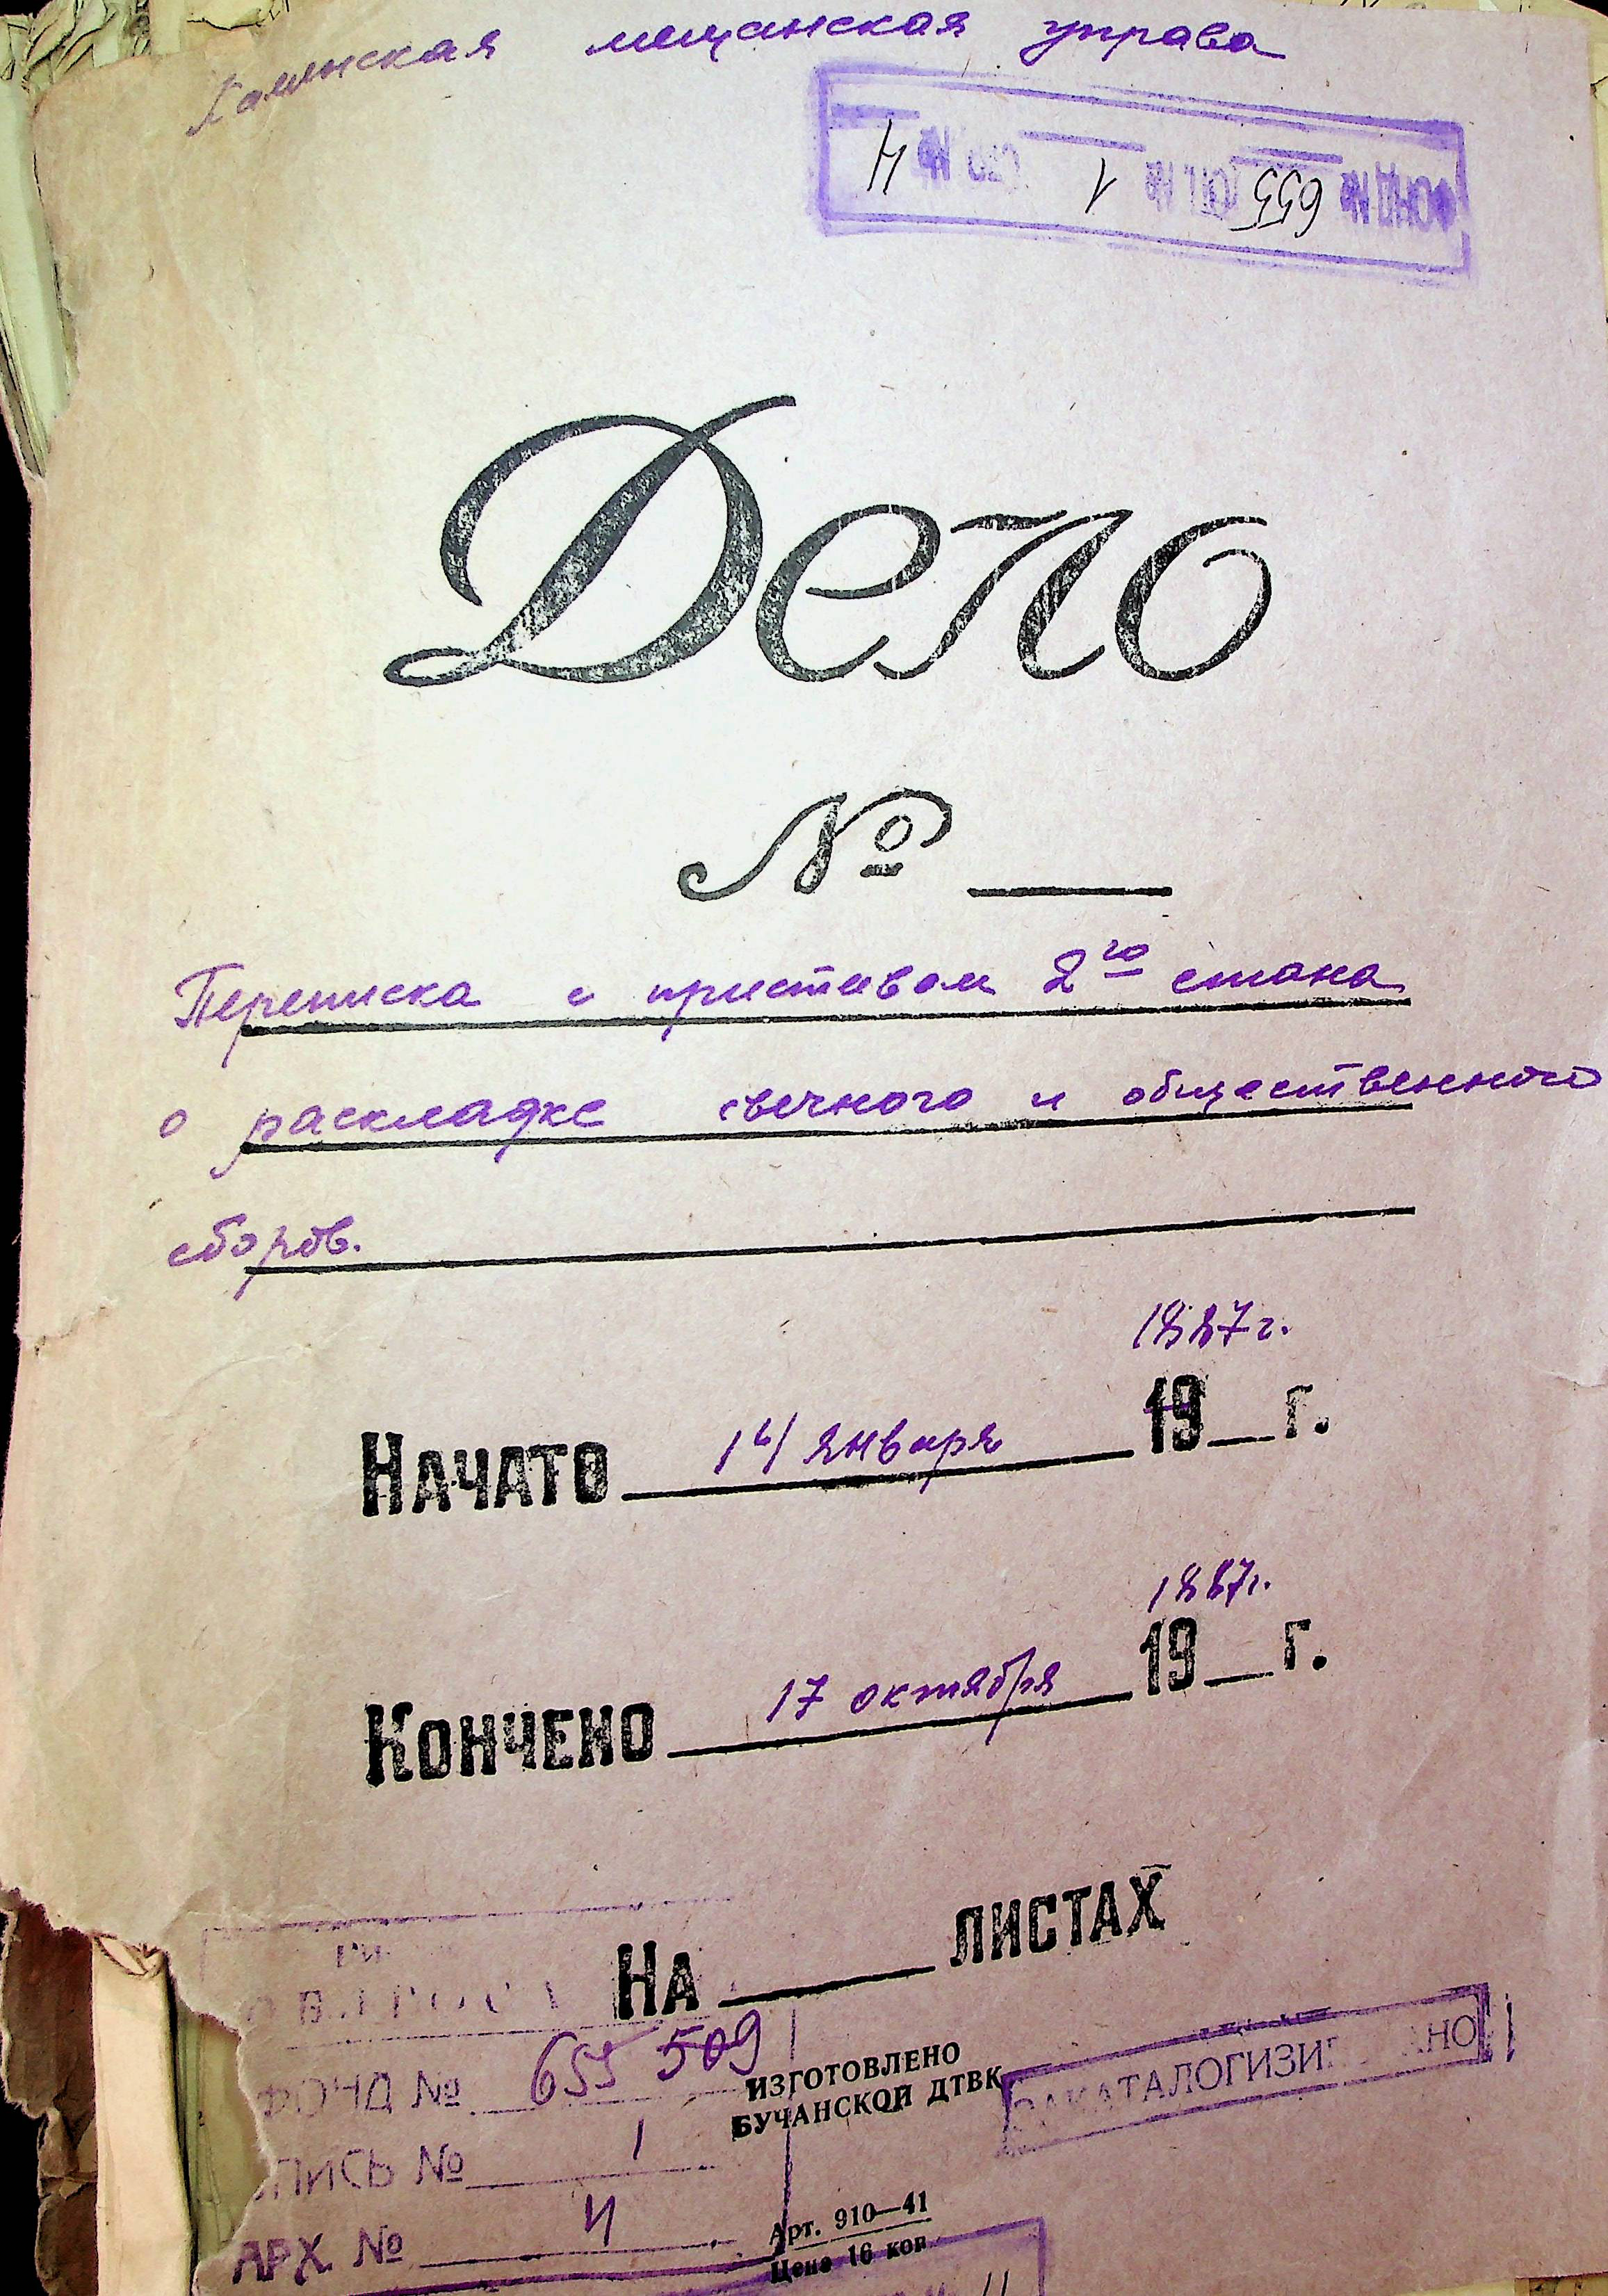 мещанская управа
ФОНД № 655 ОП. № 1 ЕД. № 4
Дело
№
Переписка с приставом 2го стана
о раскладке свечного и общественного
сборов.
1887 г.
Начато 14 января 19 г.
1887г.
Кончено 17 октября 19 г.
На листах
ФОНД № 655 509
ПИСЬ № 1
АРХ. № 4
ИЗГОТОВЛЕНО
БУЧАНСКОЙ ДТВК
ЗАКАТАЛОГИЗИ АНО
Арт. 910—41
Цена 16 коп